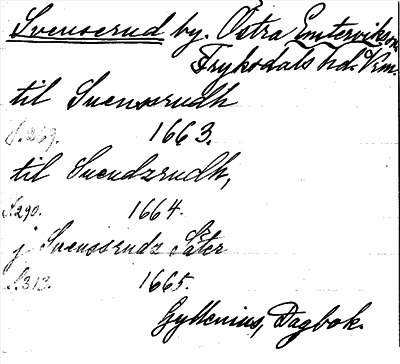 Svenserud by. Östra Emterviks sn.
Fryksdals hd. Vrm.
til Svenssrudh
S. 269. 1663.
til Svendzrudh,
S. 290. 1664.
j Svenssrudz Säter
S. 313. 1665.
Gyllenius, Dagbok.